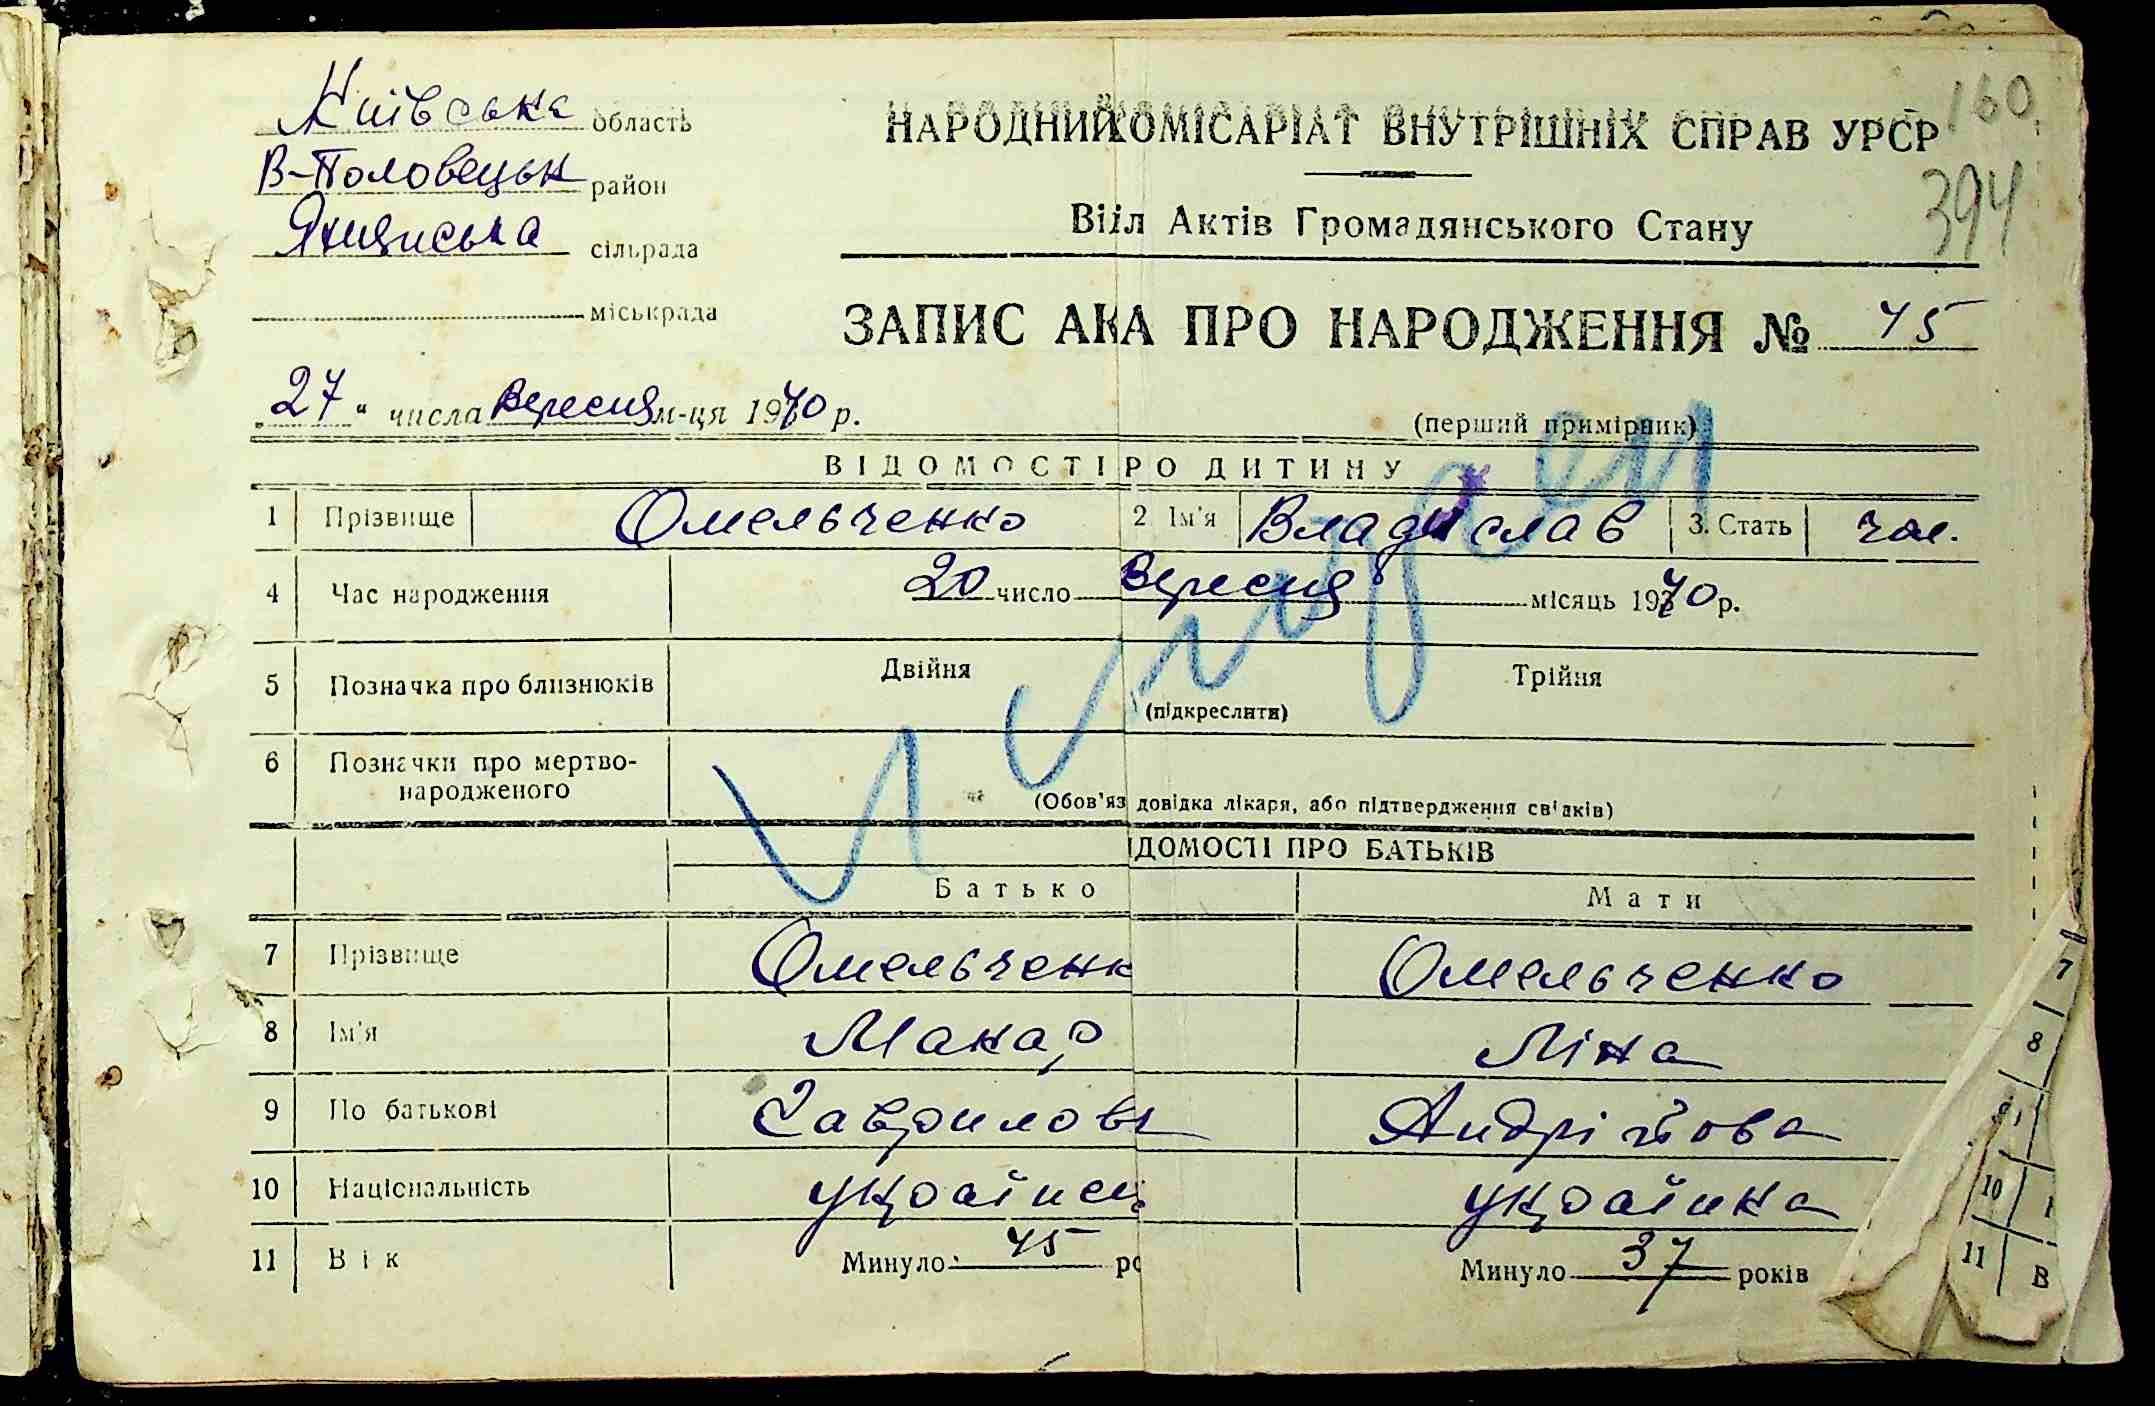 Київська область
160
В-Половецьк район
394
Янишиська сільрада
міськрада
НАРОДНИЙ КОМІСАРІАТ ВНУТРІШНІХ СПРАВ УРСР
Відл Актів Громадянського Стану
ЗАПИС АКА ПРО НАРОДЖЕННЯ № 45
„27“ числа вересня м-ця 1940 р.
(перший примірник)
ВІДОМОСТІ РО ДИТИНУ
1 Прізвище Омельченко 2 Ім'я Владислав 3. Стать чол.
4 Час народження 20 число вересня місяць 1940 р.
5 Позначка про близнюків Двійня Трійня
(підкреслити)
6 Позначки про мертво-
народженого
(Обов'яз довідка лікаря, або підтвердження свідків)
ІДОМОСТІ ПРО БАТЬКІВ
Батько Мати
7 Прізвище Омельченк Омельченко
8 Ім'я Макар Ліна
9 По батькові Гаврилов Андрійова
10 Національність українець українка
11 Вік Минуло 45 ро Минуло 37 років
7
8
9
10
11 В